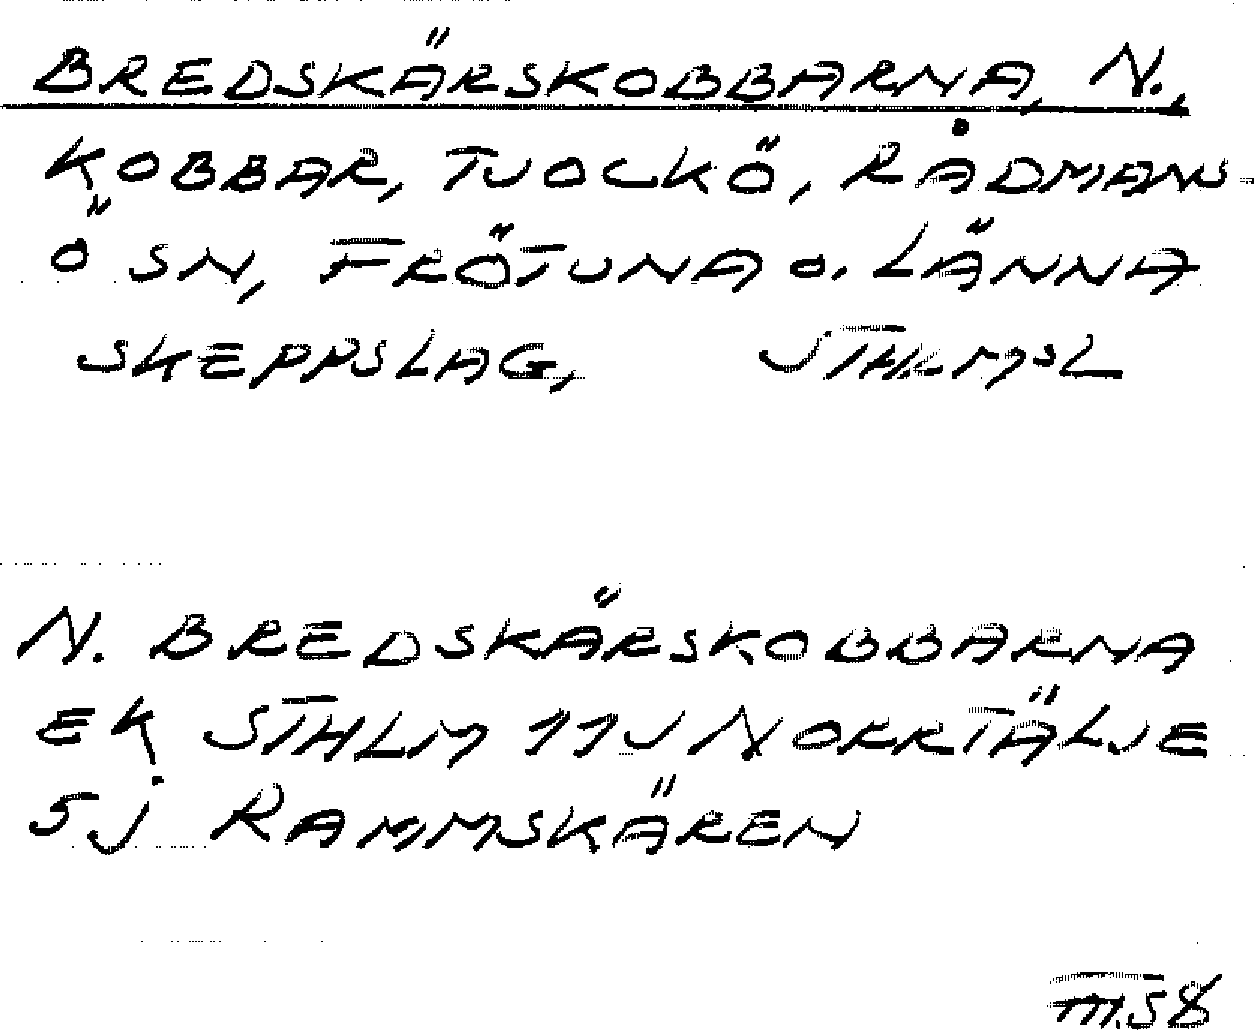 BREDSKÄRSKOBBARNA, N.,
KOBBAR, TJOCKÖ, RÅDMANS-
Ö SN, FRÖTUNA O. LÄNNA
SKEPPSLAG, STHLMSL
N. BREDSKÄRSKOBBARNA
EK STHLM 11J NORRTÄLJE
5J RAMMSKÄREN